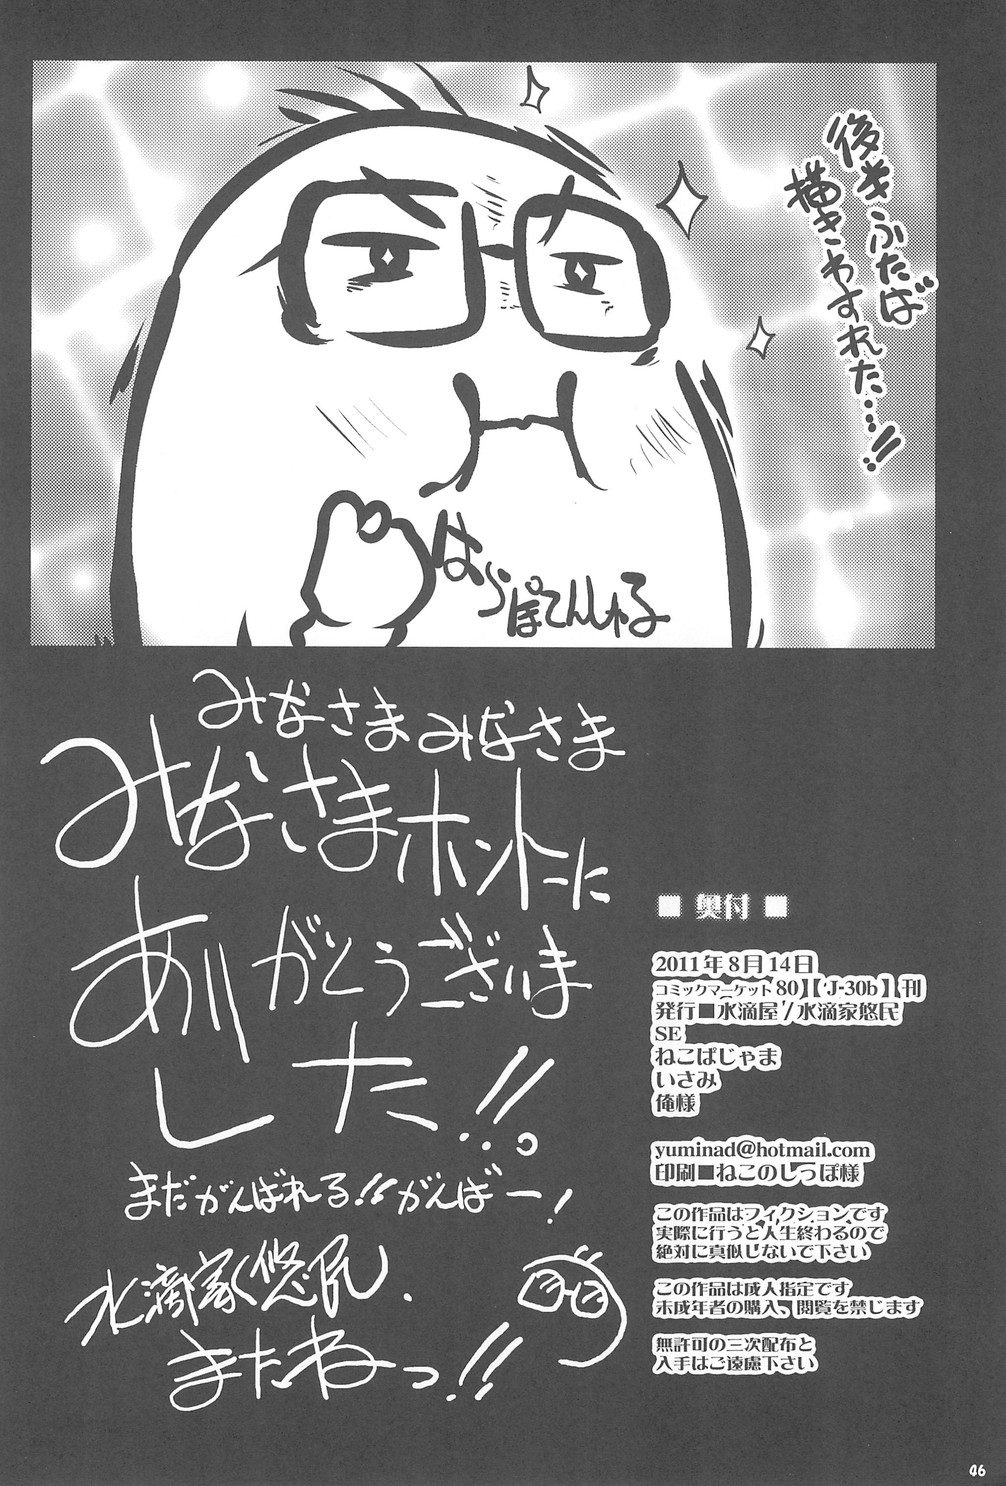 後半ふたば
描きわすれた…!!
はらぽてんしゃる
みなさまみなさま
みなさまホントに
ありがとうございま
した!!。
まだがんばれる!!がんばー!
水滴家悠民、
またねっ!!
■ 奥付 ■
2011年8月14日
コミックマーケット80】【'J-30b】刊
発行■水滴屋/水滴家悠民
SE
ねこぱじゃま
いさみ
俺様
yuminad@hotmail.com
印刷■ねこのしっぽ様
この作品はフィクションです
実際に行うと人生終わるので
絶対に真似しないで下さい
この作品は成人指定です
未成年者の購入、閲覧を禁じます
無許可の三次配布と
入手はご遠慮下さい
46